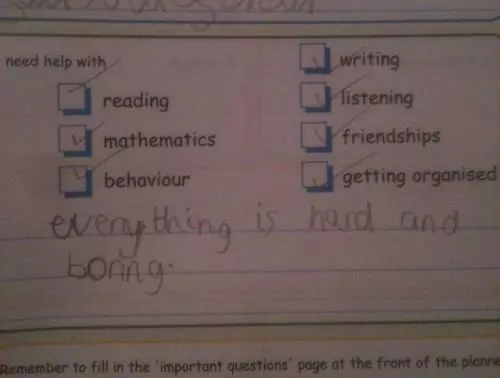 need help with
writing
reading
listening
mathematics
friendships
behaviour
getting organised
everything is hard and
boring.
Remember to fill in the 'important questions' page at the front of the planne